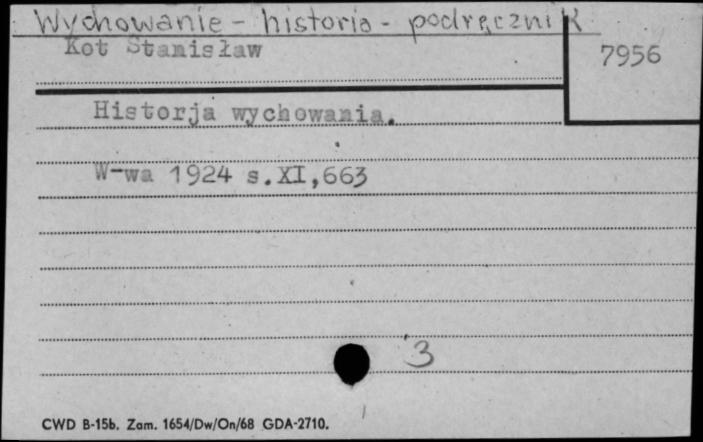 Wychowanie - historia - podręcznik
Kot Stanisław
7956
Historja wychowania.
W-wa 1924 s.XI,663
3
CWD B-15b. Zam. 1654/Dw/On/68 GDA-2710.